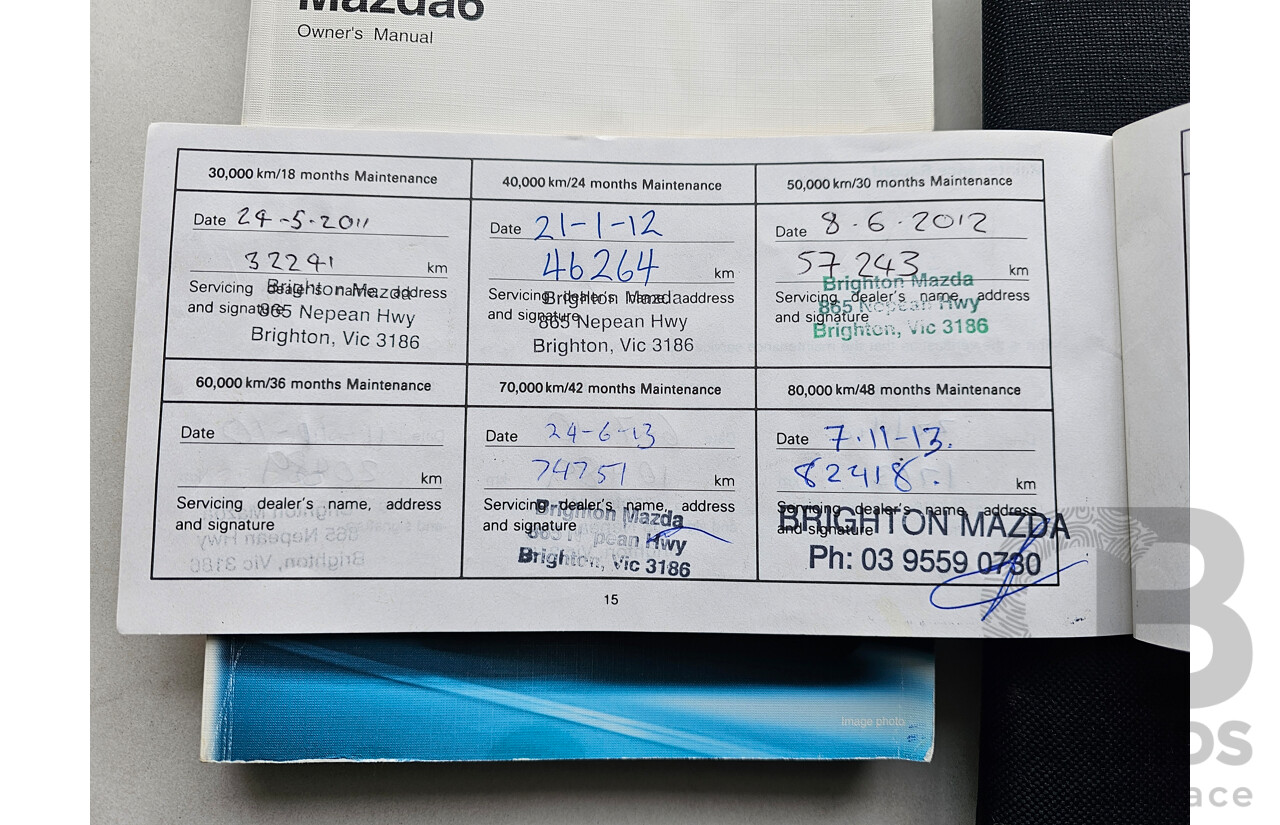 Mazda6
Owner's Manual
30,000 km/18 months Maintenance
Date 24-5-2011
32241 km
Servicing dealer's name, address
and signature
Brighton Mazda
865 Nepean Hwy
Brighton, Vic 3186
40,000 km/24 months Maintenance
Date 21-1-12
46264 km
Servicing dealer's name, address
and signature
Brighton Mazda
865 Nepean Hwy
Brighton, Vic 3186
50,000 km/30 months Maintenance
Date 8.6.2012
57243 km
Servicing dealer's name, address
and signature
Brighton Mazda
865 Nepean Hwy
Brighton, Vic 3186
60,000 km/36 months Maintenance
Date
km
Servicing dealer's name, address
and signature
70,000 km/42 months Maintenance
Date 24-6-13
74751 km
Servicing dealer's name, address
and signature
Brighton Mazda
865 Nepean Hwy
Brighton, Vic 3186
80,000 km/48 months Maintenance
Date 7.11-13.
82418. km
Servicing dealer's name, address
and signature
BRIGHTON MAZDA
Ph: 03 9559 0730
15
Image photo